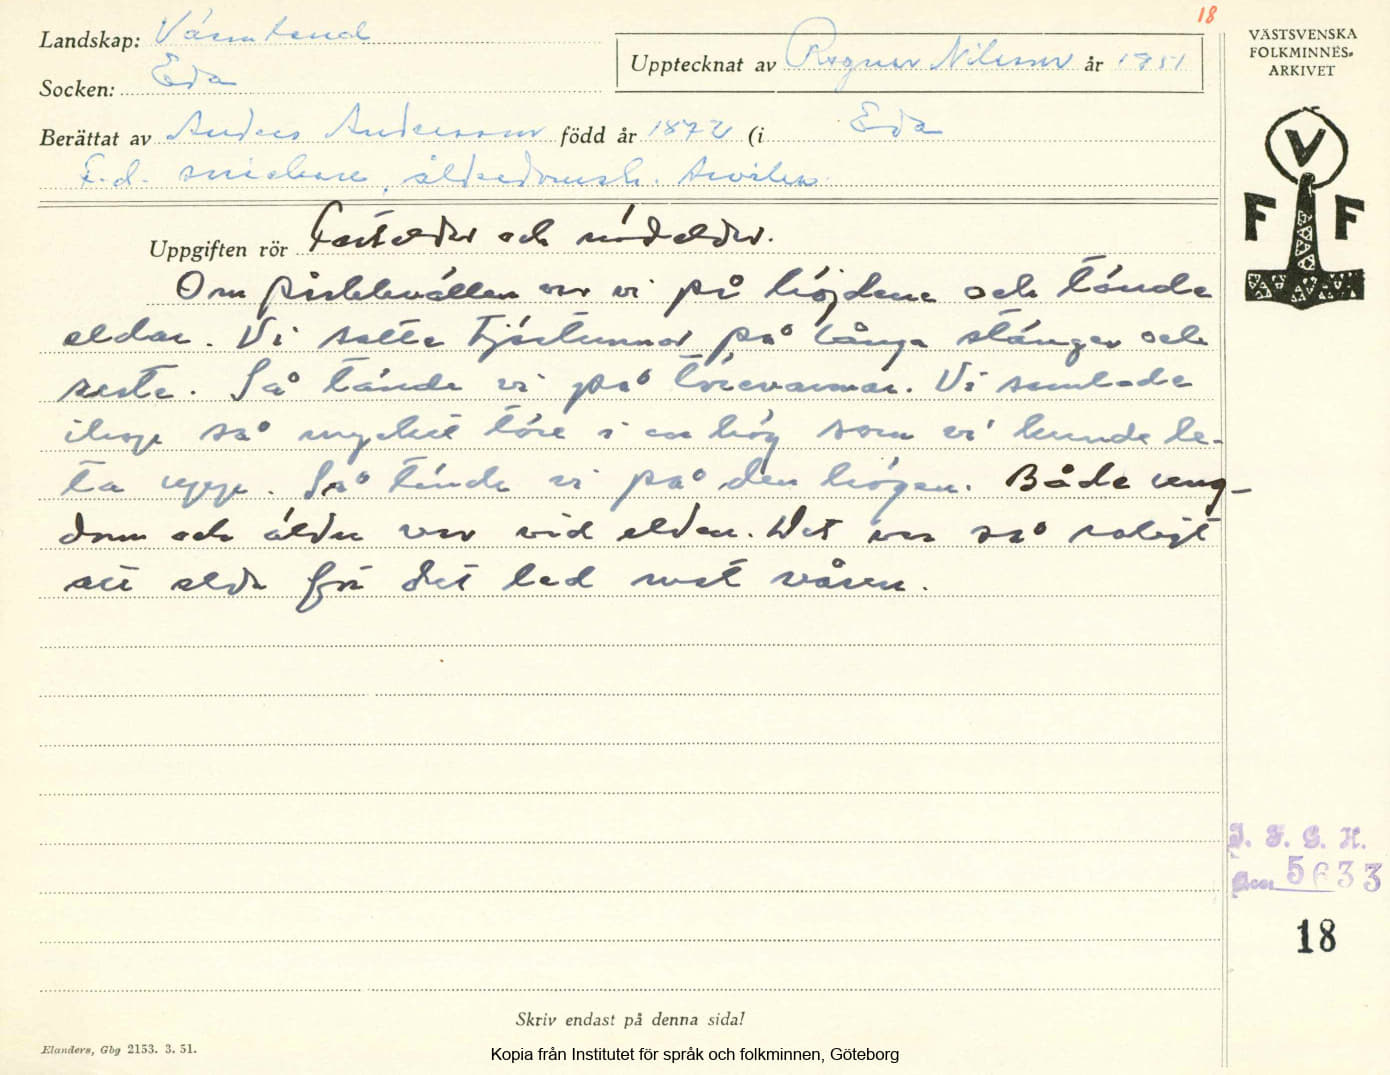 18
Landskap: Värmland
Socken: Eda
Upptecknat av Ragnar Nilsson år 1951
VÄSTSVENSKA
FOLKMINNES-
ARKIVET
V
F F
Berättat av Anders Andersson född år 1872 (i Eda
F.d. snickare, ålderdomsh. Åmotfors
Uppgiften rör Fasteldar och nödeldar.
Om påskkvällen var vi på höjdene och tände
eldar. Vi satte tjärtunnor på långa stänger och
reste. Så tände vi på törevarmar. Vi samlade
ihop så mycket töre i en hög som vi kunde le-
ta upp. Så tände vi på den högen. Både ung-
dom och äldre var vid elden. Det var så roligt
att elda för det led mot våren.
I. F. G. H.
Acc 5633
18
Skriv endast på denna sida!
Elanders, Gbg 2153. 3. 51.
Kopia från Institutet för språk och folkminnen, Göteborg